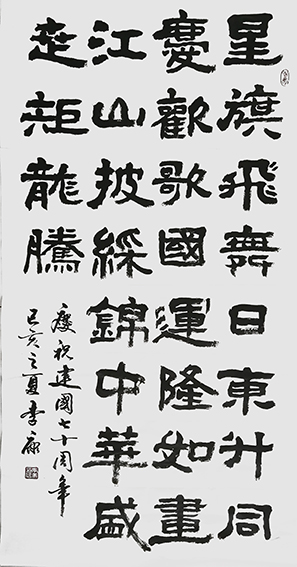 星旗飛舞日東升同
慶歡歌國運隆如畫
江山披綵錦中華盛
世矩龍騰
慶祝建國七十周年
己亥之夏李